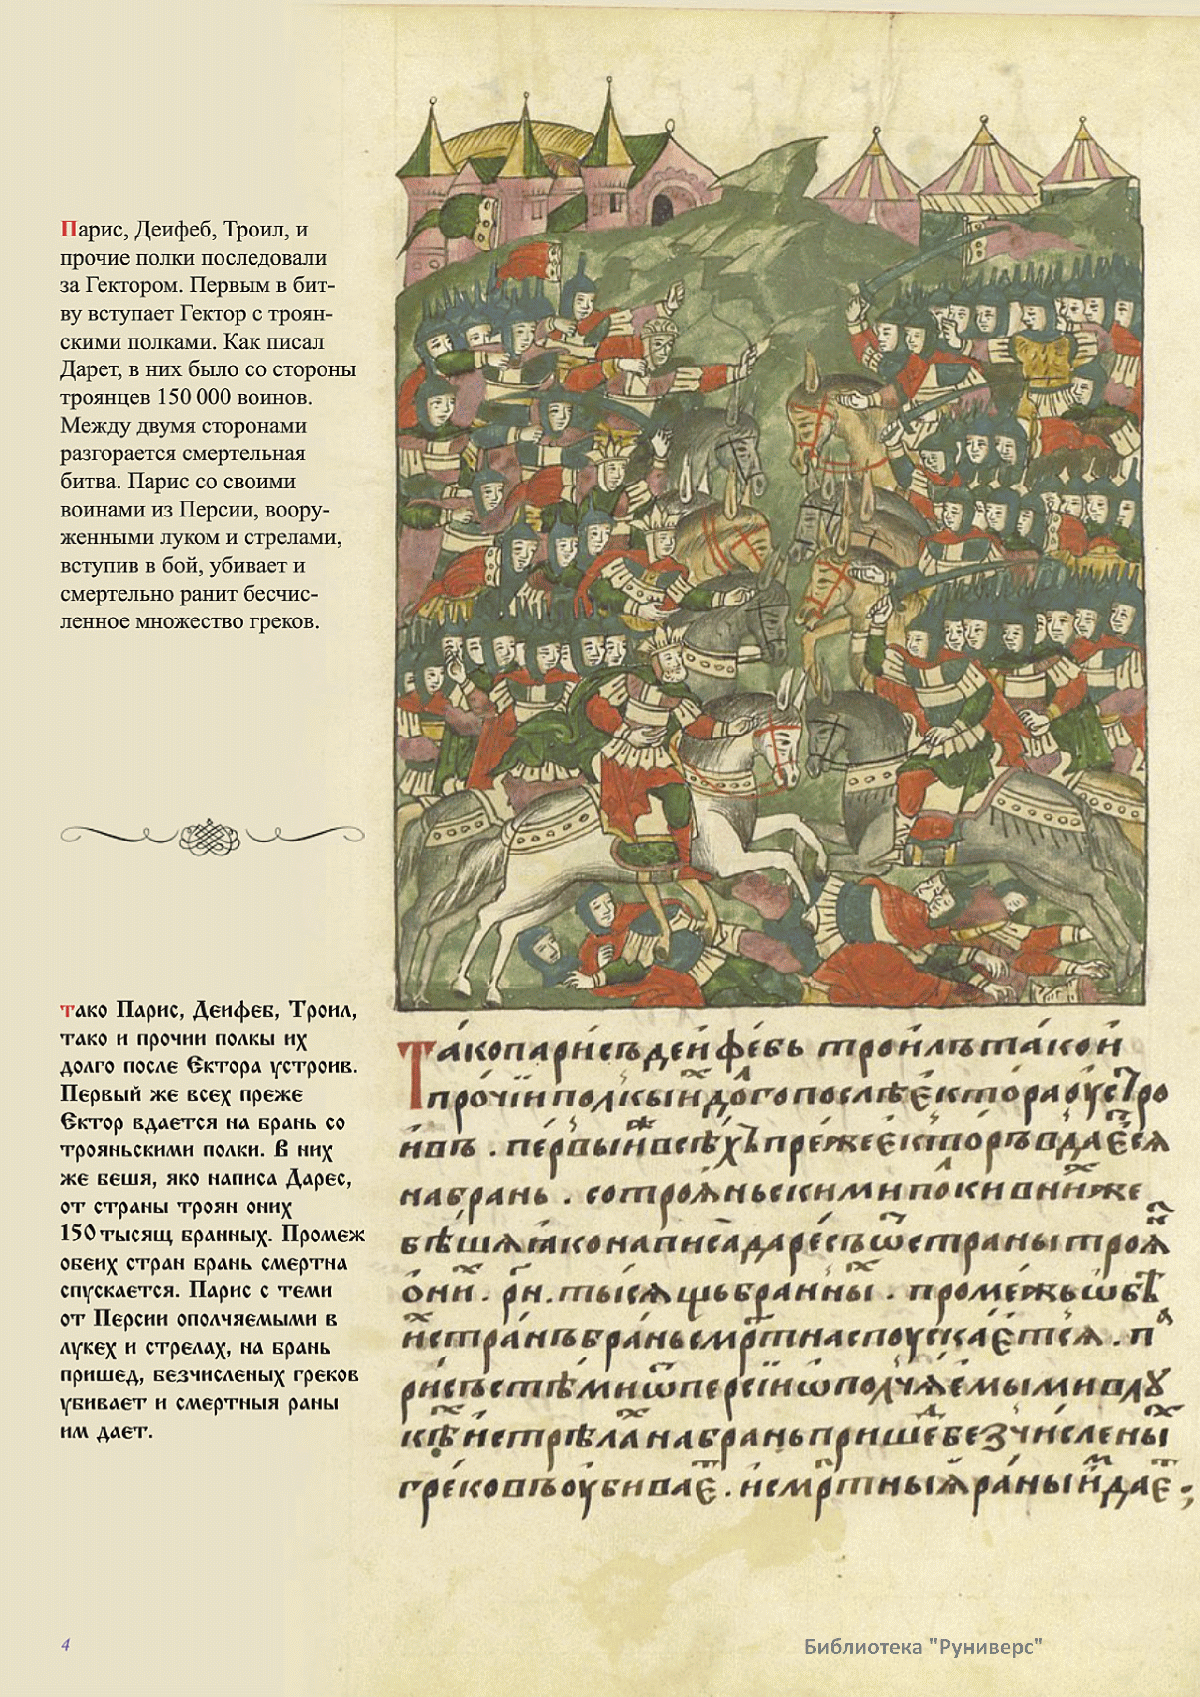 Парис, Деифеб, Троил, и
прочие полки последовали
за Гектором. Первым в бит-
ву вступает Гектор с троян-
скими полками. Как писал
Дарет, в них было со стороны
троянцев 150 000 воинов.
Между двумя сторонами
разгорается смертельная
битва. Парис со своими
воинами из Персии, воору-
женными луком и стрелами,
вступив в бой, убивает и
смертельно ранит бесчис-
ленное множество греков.
тако Парис, Деифеб, Троил,
тако и прочии полкы их
долго после Ектора устроив.
Первый же всех преже
Ектор вдается на брань со
трояньскими полки. В них
же бешя, яко написа Дарес,
от страны троян оних
150 тысящ бранных. Промеж
обеих стран брань смертна
спускается. Парис с теми
от Персии ополчяемыми в
лукех и стрелах, на брань
пришед, безчисленых греков
убивает и смертныя раны
им дает.
Та́копари́съдеи҆фе́бь трои́лъта́кои҆
про́чїиполкы́и҆д́о́гопослѣе҆кто́раоу҆стро
и́въ . пе́рвыи҆всѣ́хъпре́жее҆кторъвдае́ся
набрань . сотроя́ньскимипокивни́же
бѣшяꙗ҆конаписадаре́съѿстраны троя́
о҆ни́ . рн҃ . ты́сящьбранны . проме́жьѡбѣ
и҆стра́нъбра́ньсмр́тнаспоуска́е҆тся . п
ри́състѣ́миѿперсїиѡ҆полчя́емымивлꙋ
кѣ́и҆стрѣ́ланабра́ньприше́бе́зчи́слены
гре́ковъоу҆бивае҆ . и҆смр́тныя҆ра́ныи҆дае҆ ;
4
Библиотека "Руниверс"